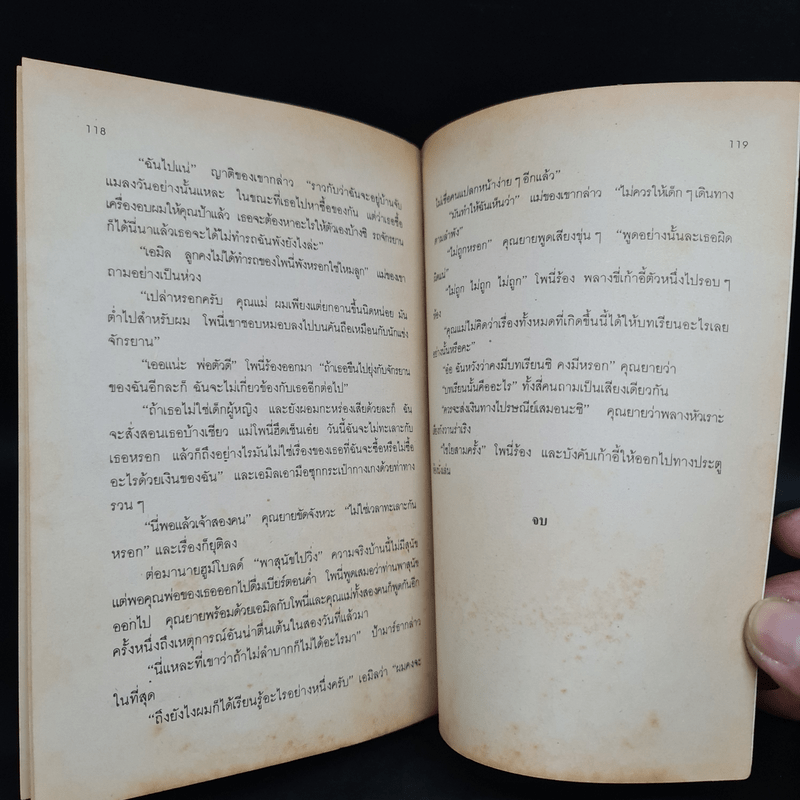 118
“ฉันไปแน่” ญาติของเขากล่าว “ราวกับว่าฉันจะอยู่บ้านจับ
แมลงวันอย่างนั้นแหละ ในขณะที่เธอไปหาซื้อของกัน แต่ว่าเธอซื้อ
เครื่องอบผมให้คุณป้าแล้ว เธอจะต้องหาอะไรให้ตัวเองบ้างซิ รถจักรยาน
ก็ได้นี่นาแล้วเธอจะได้ไม่ทำรถฉันพังยังไงล่ะ”
“เอมิล ลูกคงไม่ได้ทำรถของโพนี่พังหรอกใช่ไหมลูก” แม่ของเขา
ถามอย่างเป็นห่วง
“เปล่าหรอกครับ คุณแม่ ผมเพียงแต่ยกอานขึ้นนิดหน่อย มัน
ต่ำไปสำหรับผม โพนี่เขาชอบหมอบลงไปบนคันถือเหมือนกับนักแข่ง
จักรยาน”
“เออแน่ะ พ่อตัวดี” โพนี่ร้องออกมา “ถ้าเธอขืนไปยุ่งกับจักรยาน
ของฉันอีกละก็ ฉันจะไม่เกี่ยวข้องกับเธออีกต่อไป”
“ถ้าเธอไม่ใช่เด็กผู้หญิง และยังผอมกะหร่องเสียด้วยละก็ ฉัน
จะสั่งสอนเธอบ้างเชียว แม่โพนี่ฮึดเช็นเอ๋ย วันนี้ฉันจะไม่ทะเลาะกับ
เธอหรอก แล้วก็ถึงอย่างไรมันไม่ใช่เรื่องของเธอที่ฉันจะซื้อหรือไม่ซื้อ
อะไรด้วยเงินของฉัน” และเอมิลเอามือซุกกระเป๋ากางเกงด้วยท่าทาง
รวน ๆ
“นี่พอแล้วเจ้าสองคน” คุณยายขัดจังหวะ “ไม่ใช่เวลาทะเลาะกัน
หรอก” และเรื่องก็ยุติลง
ต่อมานายฮูม์โบลด์ “พาสุนัขไปวิ่ง” ความจริงบ้านนี้ไม่มีสุนัข
แต่พอคุณพ่อของเธอออกไปดื่มเบียร์ตอนค่ำ โพนี่พูดเสมอว่าท่านพาสุนัข
ออกไป คุณยายพร้อมด้วยเอมิลกับโพนี่และคุณแม่ทั้งสองคนก็พูดกันอีก
ครั้งหนึ่งถึงเหตุการณ์อันน่าตื่นเต้นในสองวันที่แล้วมา
“นี่แหละที่เขาว่าถ้าไม่ลำบากก็ไม่ได้อะไรมา” ป้ามาร์ธากล่าว
ในที่สุด
“ถึงยังไงผมก็ได้เรียนรู้อะไรอย่างหนึ่งครับ” เอมิลว่า “ผมคงจะ
119
ไม่เชื่อคนแปลกหน้าง่าย ๆ อีกแล้ว”
“มันทำให้ฉันเห็นว่า” แม่ของเขากล่าว “ไม่ควรให้เด็ก ๆ เดินทาง
ตามลำพัง”
“ไม่ถูกหรอก” คุณยายพูดเสียงขุ่น ๆ “พูดอย่างนั้นละเธอผิด
“ไม่ถูก ไม่ถูก ไม่ถูก” โพนี่ร้อง พลางขี่เก้าอี้ตัวหนึ่งไปรอบ ๆ
ห้อง
“คุณแม่ไม่คิดว่าเรื่องทั้งหมดที่เกิดขึ้นนี้ได้ให้บทเรียนอะไรเลย
อย่างนั้นหรือคะ”
“อ๋อ ฉันหวังว่าคงมีบทเรียนซิ คงมีหรอก” คุณยายว่า
“บทเรียนนั้นคืออะไร” ทั้งสี่คนถามเป็นเสียงเดียวกัน
“ควรจะส่งเงินทางไปรษณีย์เสมอนะซิ” คุณยายว่าพลางหัวเราะ
“ไชโยสามครั้ง” โพนี่ร้อง และบังคับเก้าอี้ให้ออกไปทางประตู
จบ